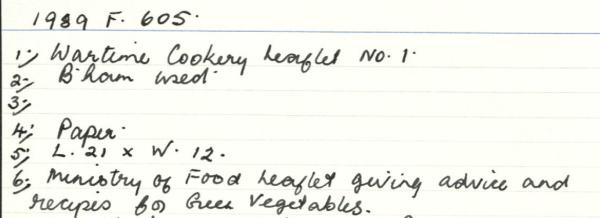 1989 F. 605.
1; Wartime Cookery Leaflet No. 1.
2; B'ham used.
3;
4; Paper.
5; L. 21 x W. 12.
6; Ministry of Food Leaflet giving advice and
recipes for Green Vegetables.